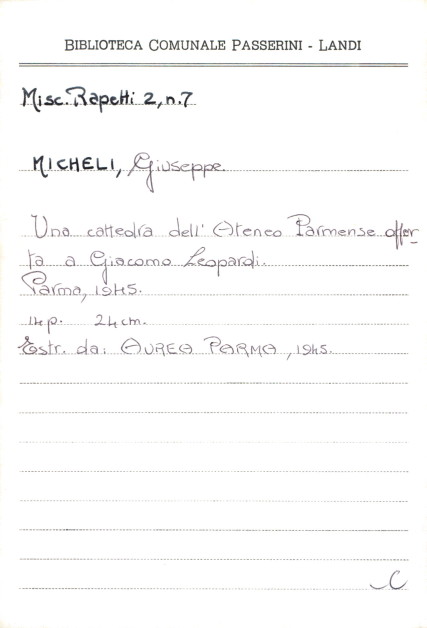 BIBLIOTECA COMUNALE PASSERINI - LANDI
Misc. Rapetti 2, n. 7
MICHELI, Giuseppe.
Una cattedra dell' Ateneo Parmense offer-
ta a Giacomo Leopardi.
Parma, 1945.
14 p. 24 cm.
Estr. da: AUREA PARMA, 1945.
C